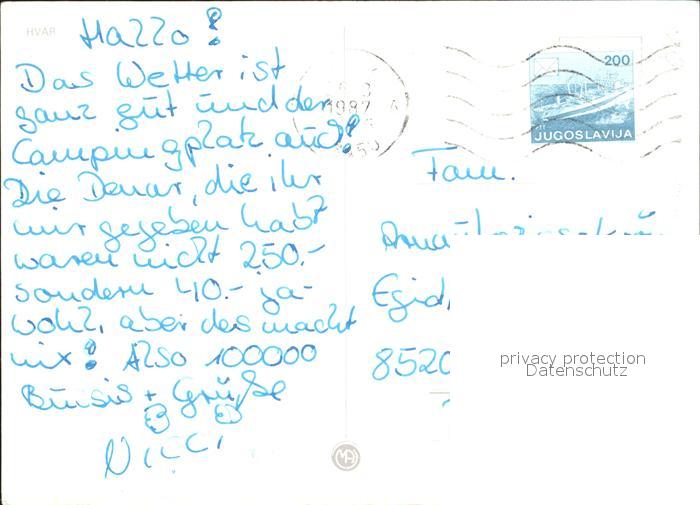 HVAR
Hallo!
Das Wetter ist
ganz gut und der
Campingplatz auch!
Die Denar, die ihr
mir gegeben habt
waren nicht 250.-
sondern 40.- ja-
wohl, aber das macht
nix! Also 100000
Bussis + Grüße
Nicci
1987
200
JUGOSLAVIJA
Fam.
Egid
8520
privacy protection
Datenschutz